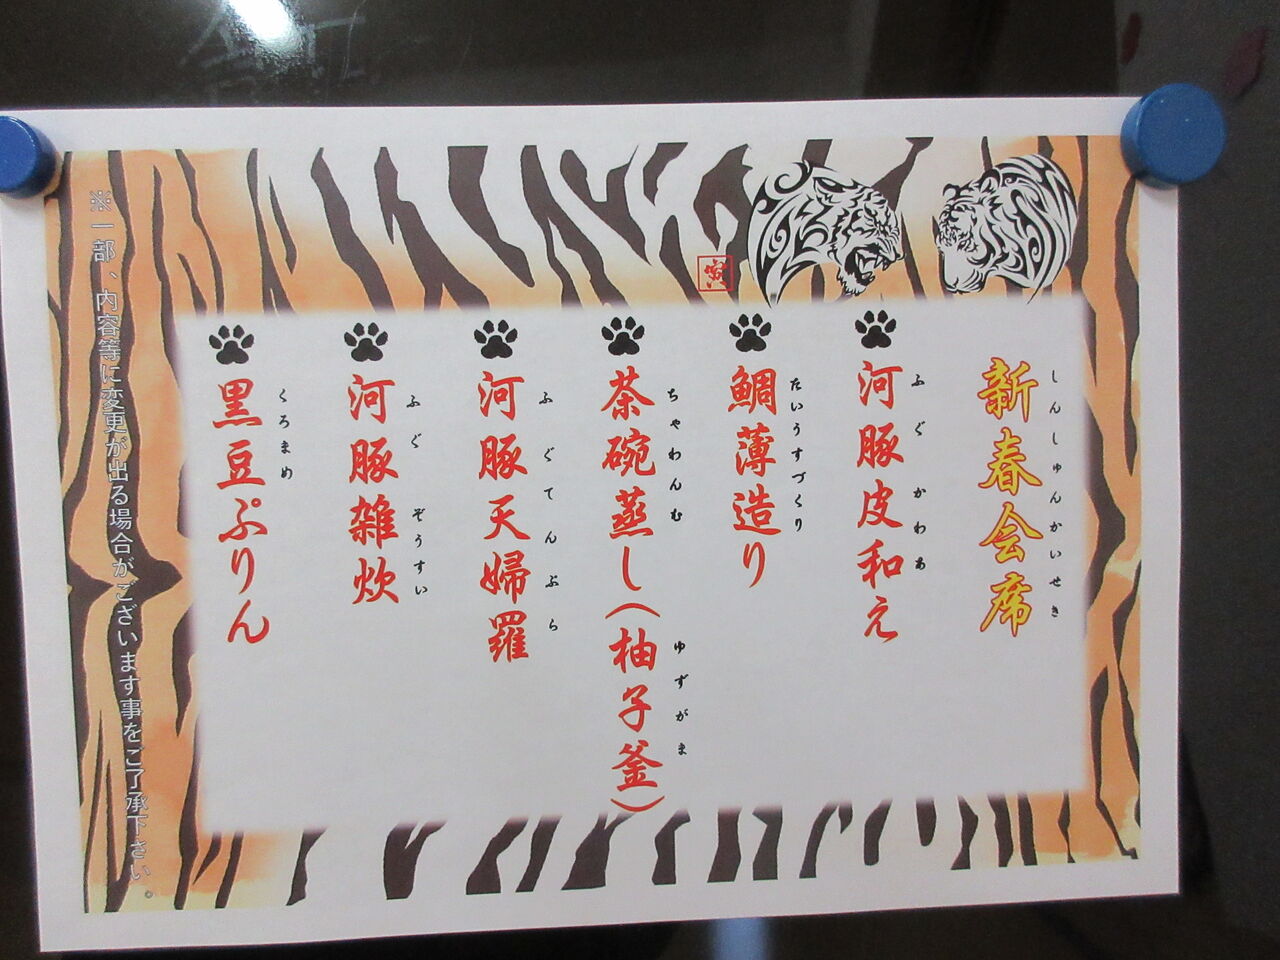 新春会席
しんしゅんかいせき
河豚皮和え
ふぐ かわあ
鯛薄造り
たいうすづくり
茶碗蒸し(柚子釜)
ちゃわんむ ゆずがま
河豚天婦羅
ふぐてんぷら
河豚雑炊
ふぐ ぞうすい
黒豆ぷりん
くろまめ
※一部、内容等に変更が出る場合がございます事をご了承下さい。
寅